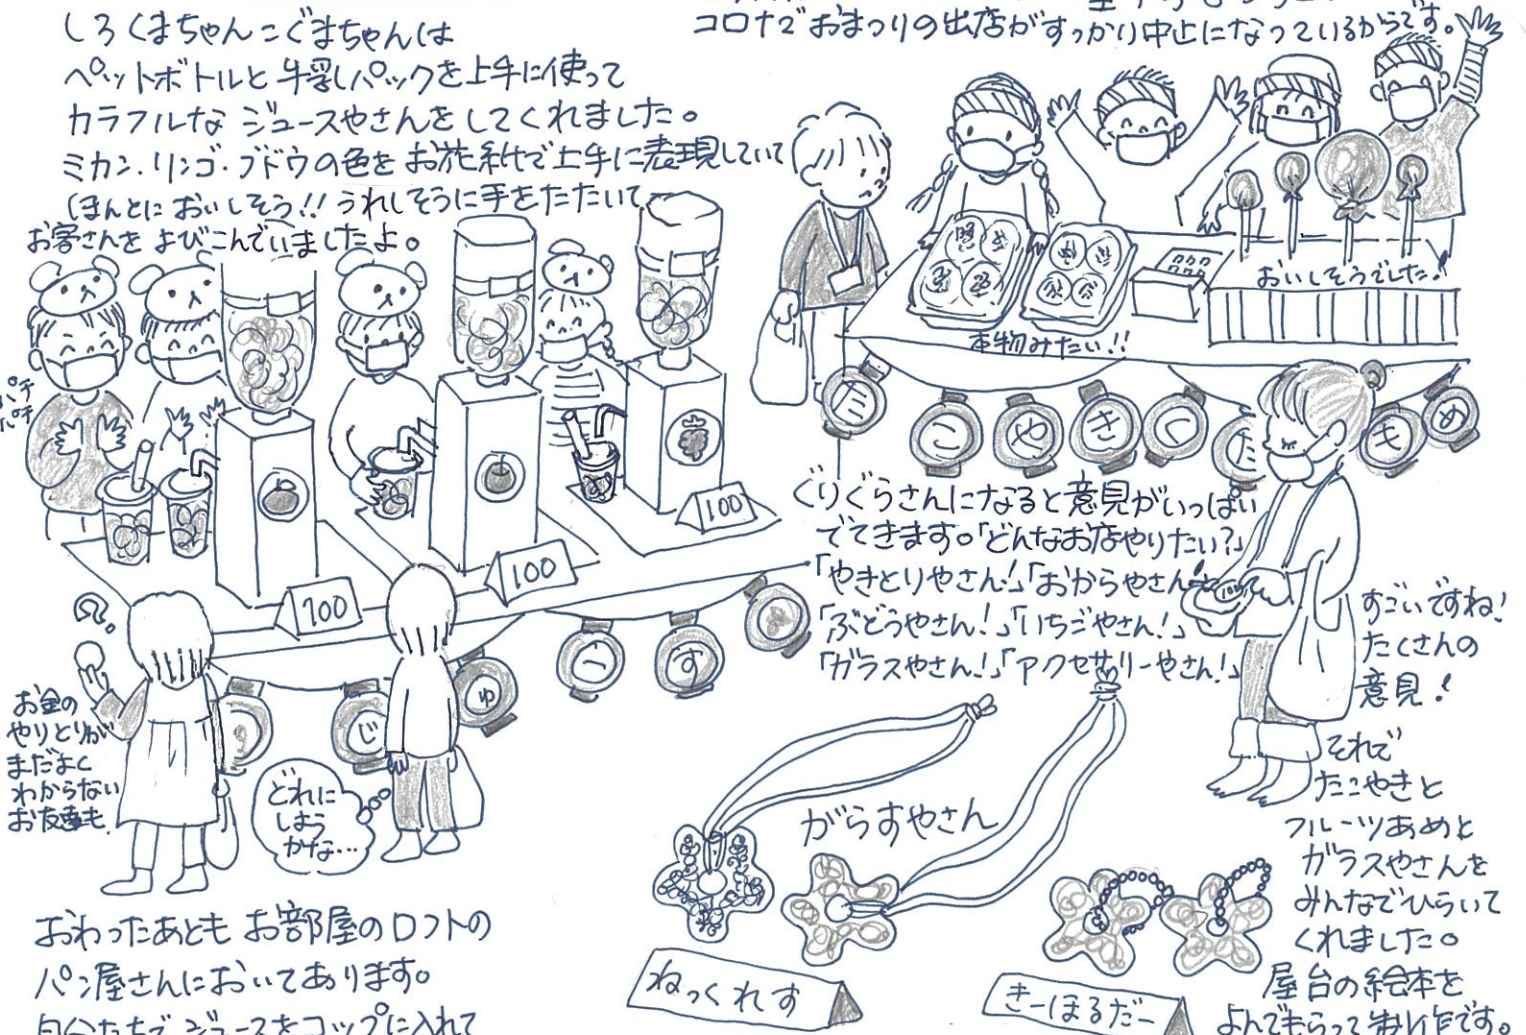 しろくまちゃんこぐまちゃんは
ペットボトルと牛乳パックを上手に使って
カラフルな ジュースやさんをしてくれました。
ミカン.リンゴ・ブドウの色をお花紙で上手に表現していて
ほんとにおいしそう!!うれしそうに手をたたいて
お客さんをよびこんでいましたよ。
パチ
パチ
100
100
100
じ
ゅ
ー
す
お金の
やりとりが
まだよく
わからない
お友達も
どれに
しよう
かな…
おわったあともお部屋のロフトの
パン屋さんにおいてあります。
自分たちでジュースをコップに入れて
コロナでおまつりの出店がすっかり中止になっているからです。
おいしそうでした!
本物みたい!!
た
こ
や
き
く
だ
も
め
ぐりぐらさんになると意見がいっぱい
でてきます。「どんなお店やりたい?」
「やきとりやさん!」「おからやさん
「ぶどうやさん!」「いちごやさん!」
「ガラスやさん!」「アクセサリーやさん!」
すごいですね!
たくさんの
意見!
それで
たこやきと
フルーツあめと
ガラスやさんを
みんなでひらいて
くれました。
屋台の絵本を
よんでもらって制作です。
がらすやさん
ねっくれす
きーほるだー